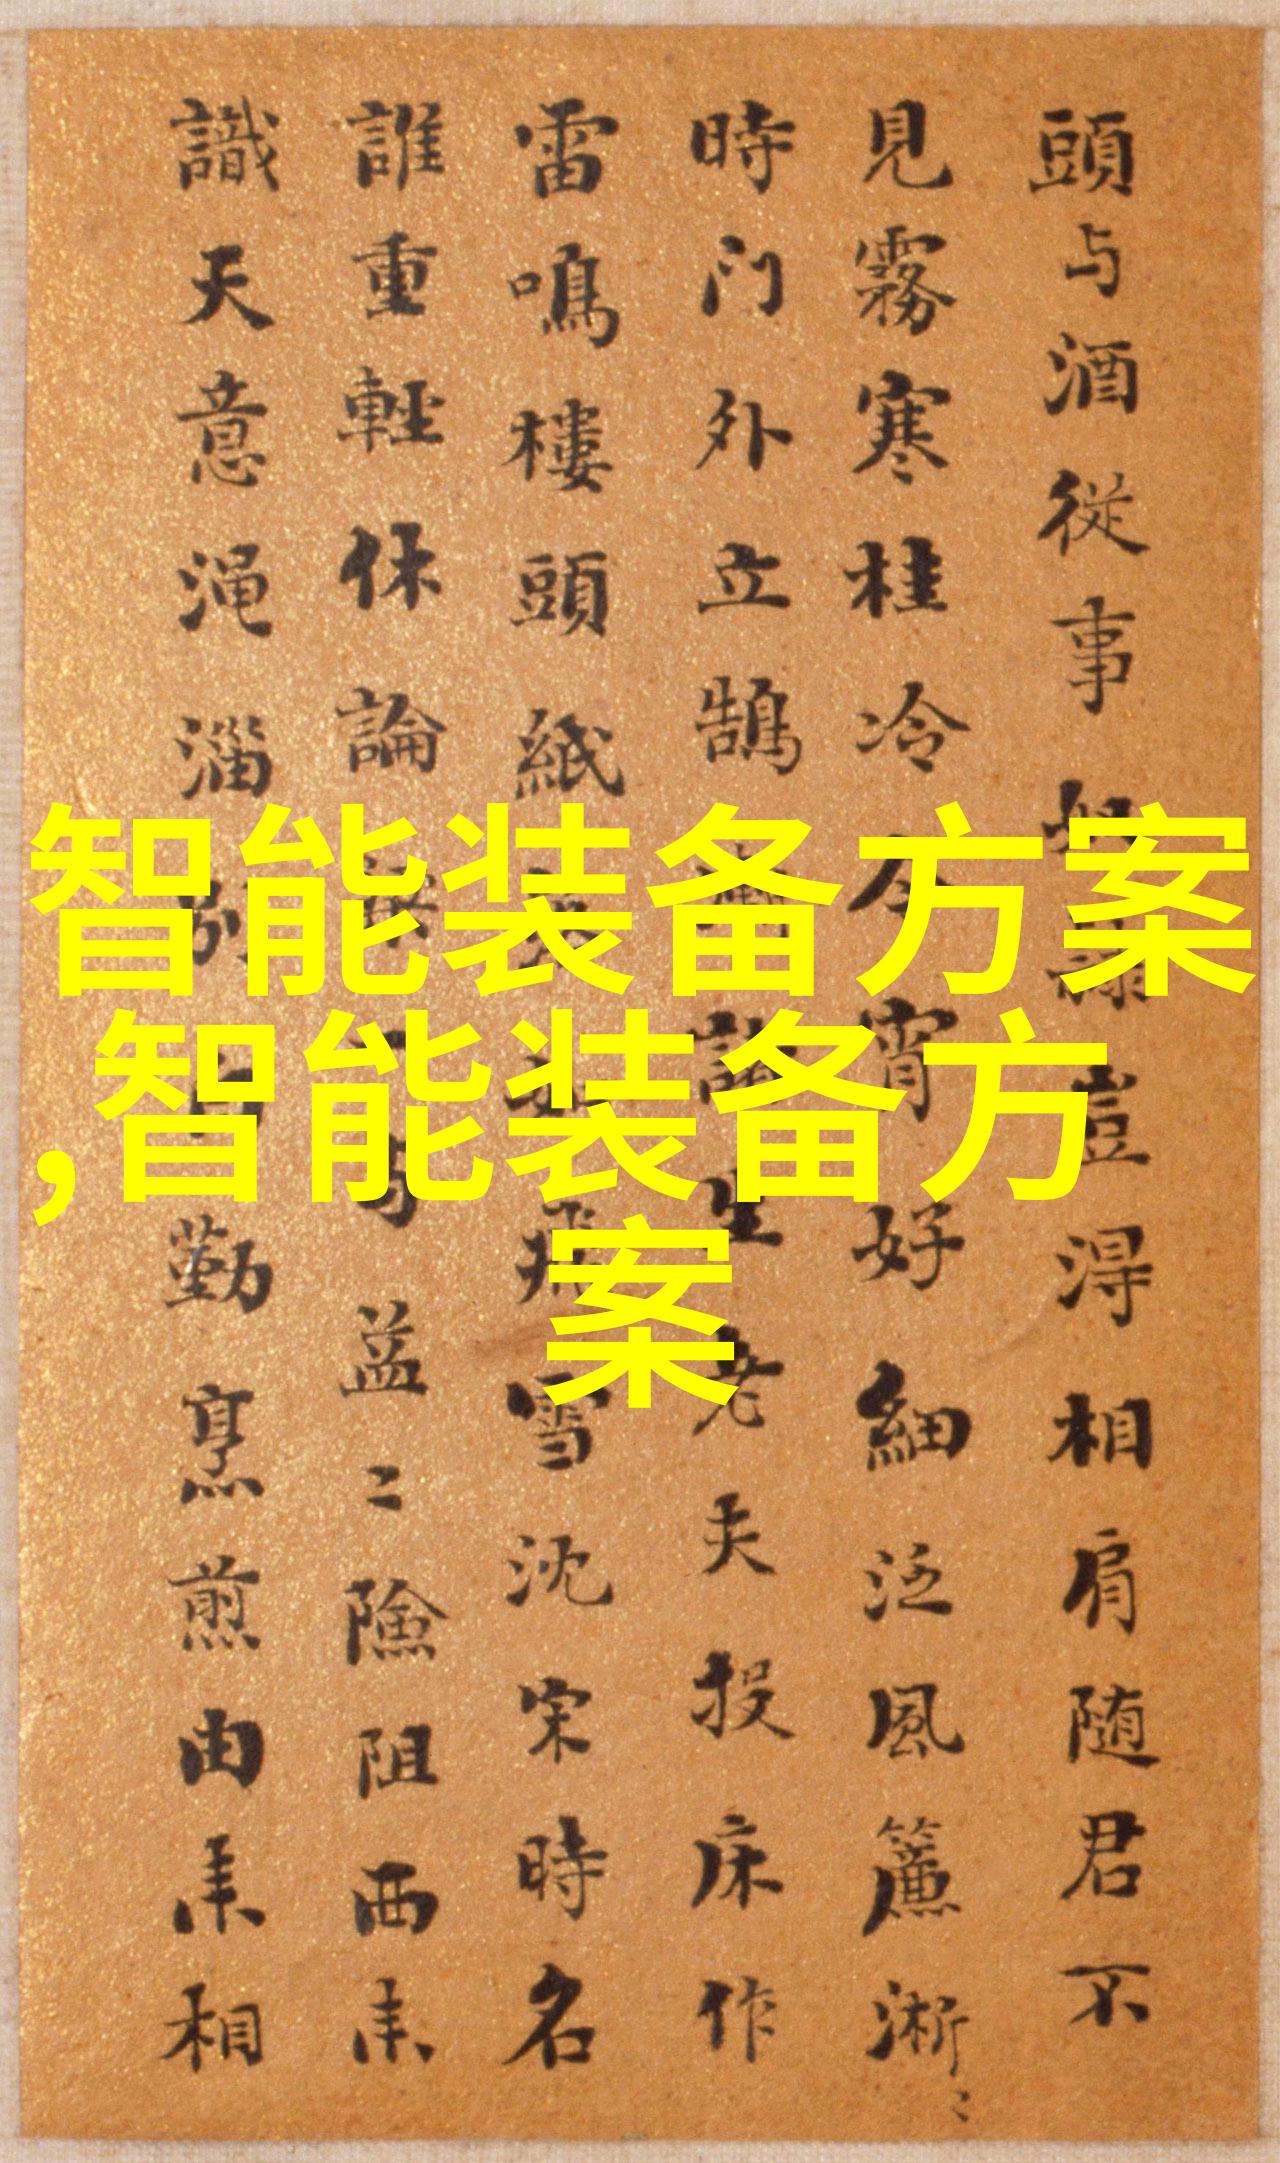 頭与酒從事豈淂相肩随君不
見霧寒桂冷今宵好細泛風簾淅〻
時门外立鵠諸生老夫投床作
雷鳴樓頭紙飛雪沈宋時名
誰重輕休論益〻險阻西来
識天意渑淄別勤烹煎由来相
智能装备方案
,智能装备方
案